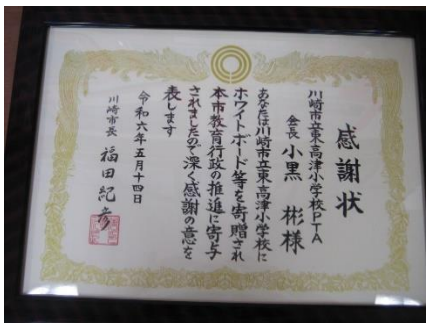 感謝状
川崎市立東高津小学校PTA
会長 小黒 彬 様
あなたは川崎市立東高津小学校に
ホワイトボード等を寄贈され
本市教育行政の推進に寄与
されましたので深く感謝の意を
表します
令和六年五月十四日
川崎市長 福田紀彦